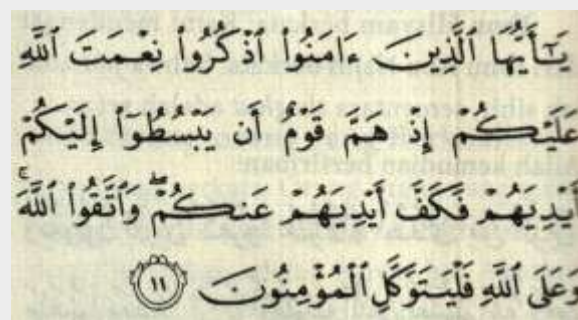 يَـٰٓأَيُّهَا ٱلَّذِينَ ءَامَنُوا۟ ٱذْكُرُوا۟ نِعْمَتَ ٱللَّهِ
عَلَيْكُمْ إِذْ هَمَّ قَوْمٌ أَن يَبْسُطُوٓا۟ إِلَيْكُمْ
أَيْدِيَهُمْ فَكَفَّ أَيْدِيَهُمْ عَنكُمْ ۖ وَٱتَّقُوا۟ ٱللَّهَ ۚ
وَعَلَى ٱللَّهِ فَلْيَتَوَكَّلِ ٱلْمُؤْمِنُونَ ١١